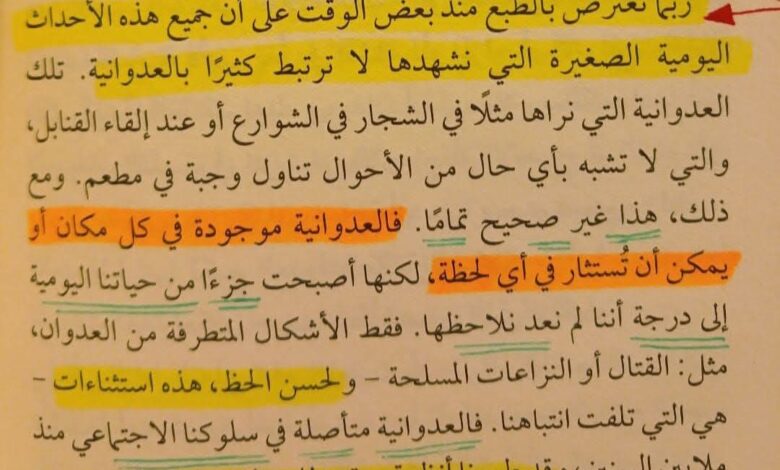 ربما نعترض بالطبع منذ بعض الوقت على أن جميع هذه الأحداث
اليومية الصغيرة التي نشهدها لا ترتبط كثيرًا بالعدوانية. تلك
العدوانية التي نراها مثلًا في الشجار في الشوارع أو عند إلقاء القنابل،
والتي لا تشبه بأي حال من الأحوال تناول وجبة في مطعم. ومع
ذلك، هذا غير صحيح تمامًا. فالعدوانية موجودة في كل مكان أو
يمكن أن تُستثار في أي لحظة، لكنها أصبحت جزءًا من حياتنا اليومية
إلى درجة أننا لم نعد نلاحظها. فقط الأشكال المتطرفة من العدوان،
مثل: القتال أو النزاعات المسلحة – ولحسن الحظ، هذه استثناءات –
هي التي تلفت انتباهنا. فالعدوانية متأصلة في سلوكنا الاجتماعي منذ